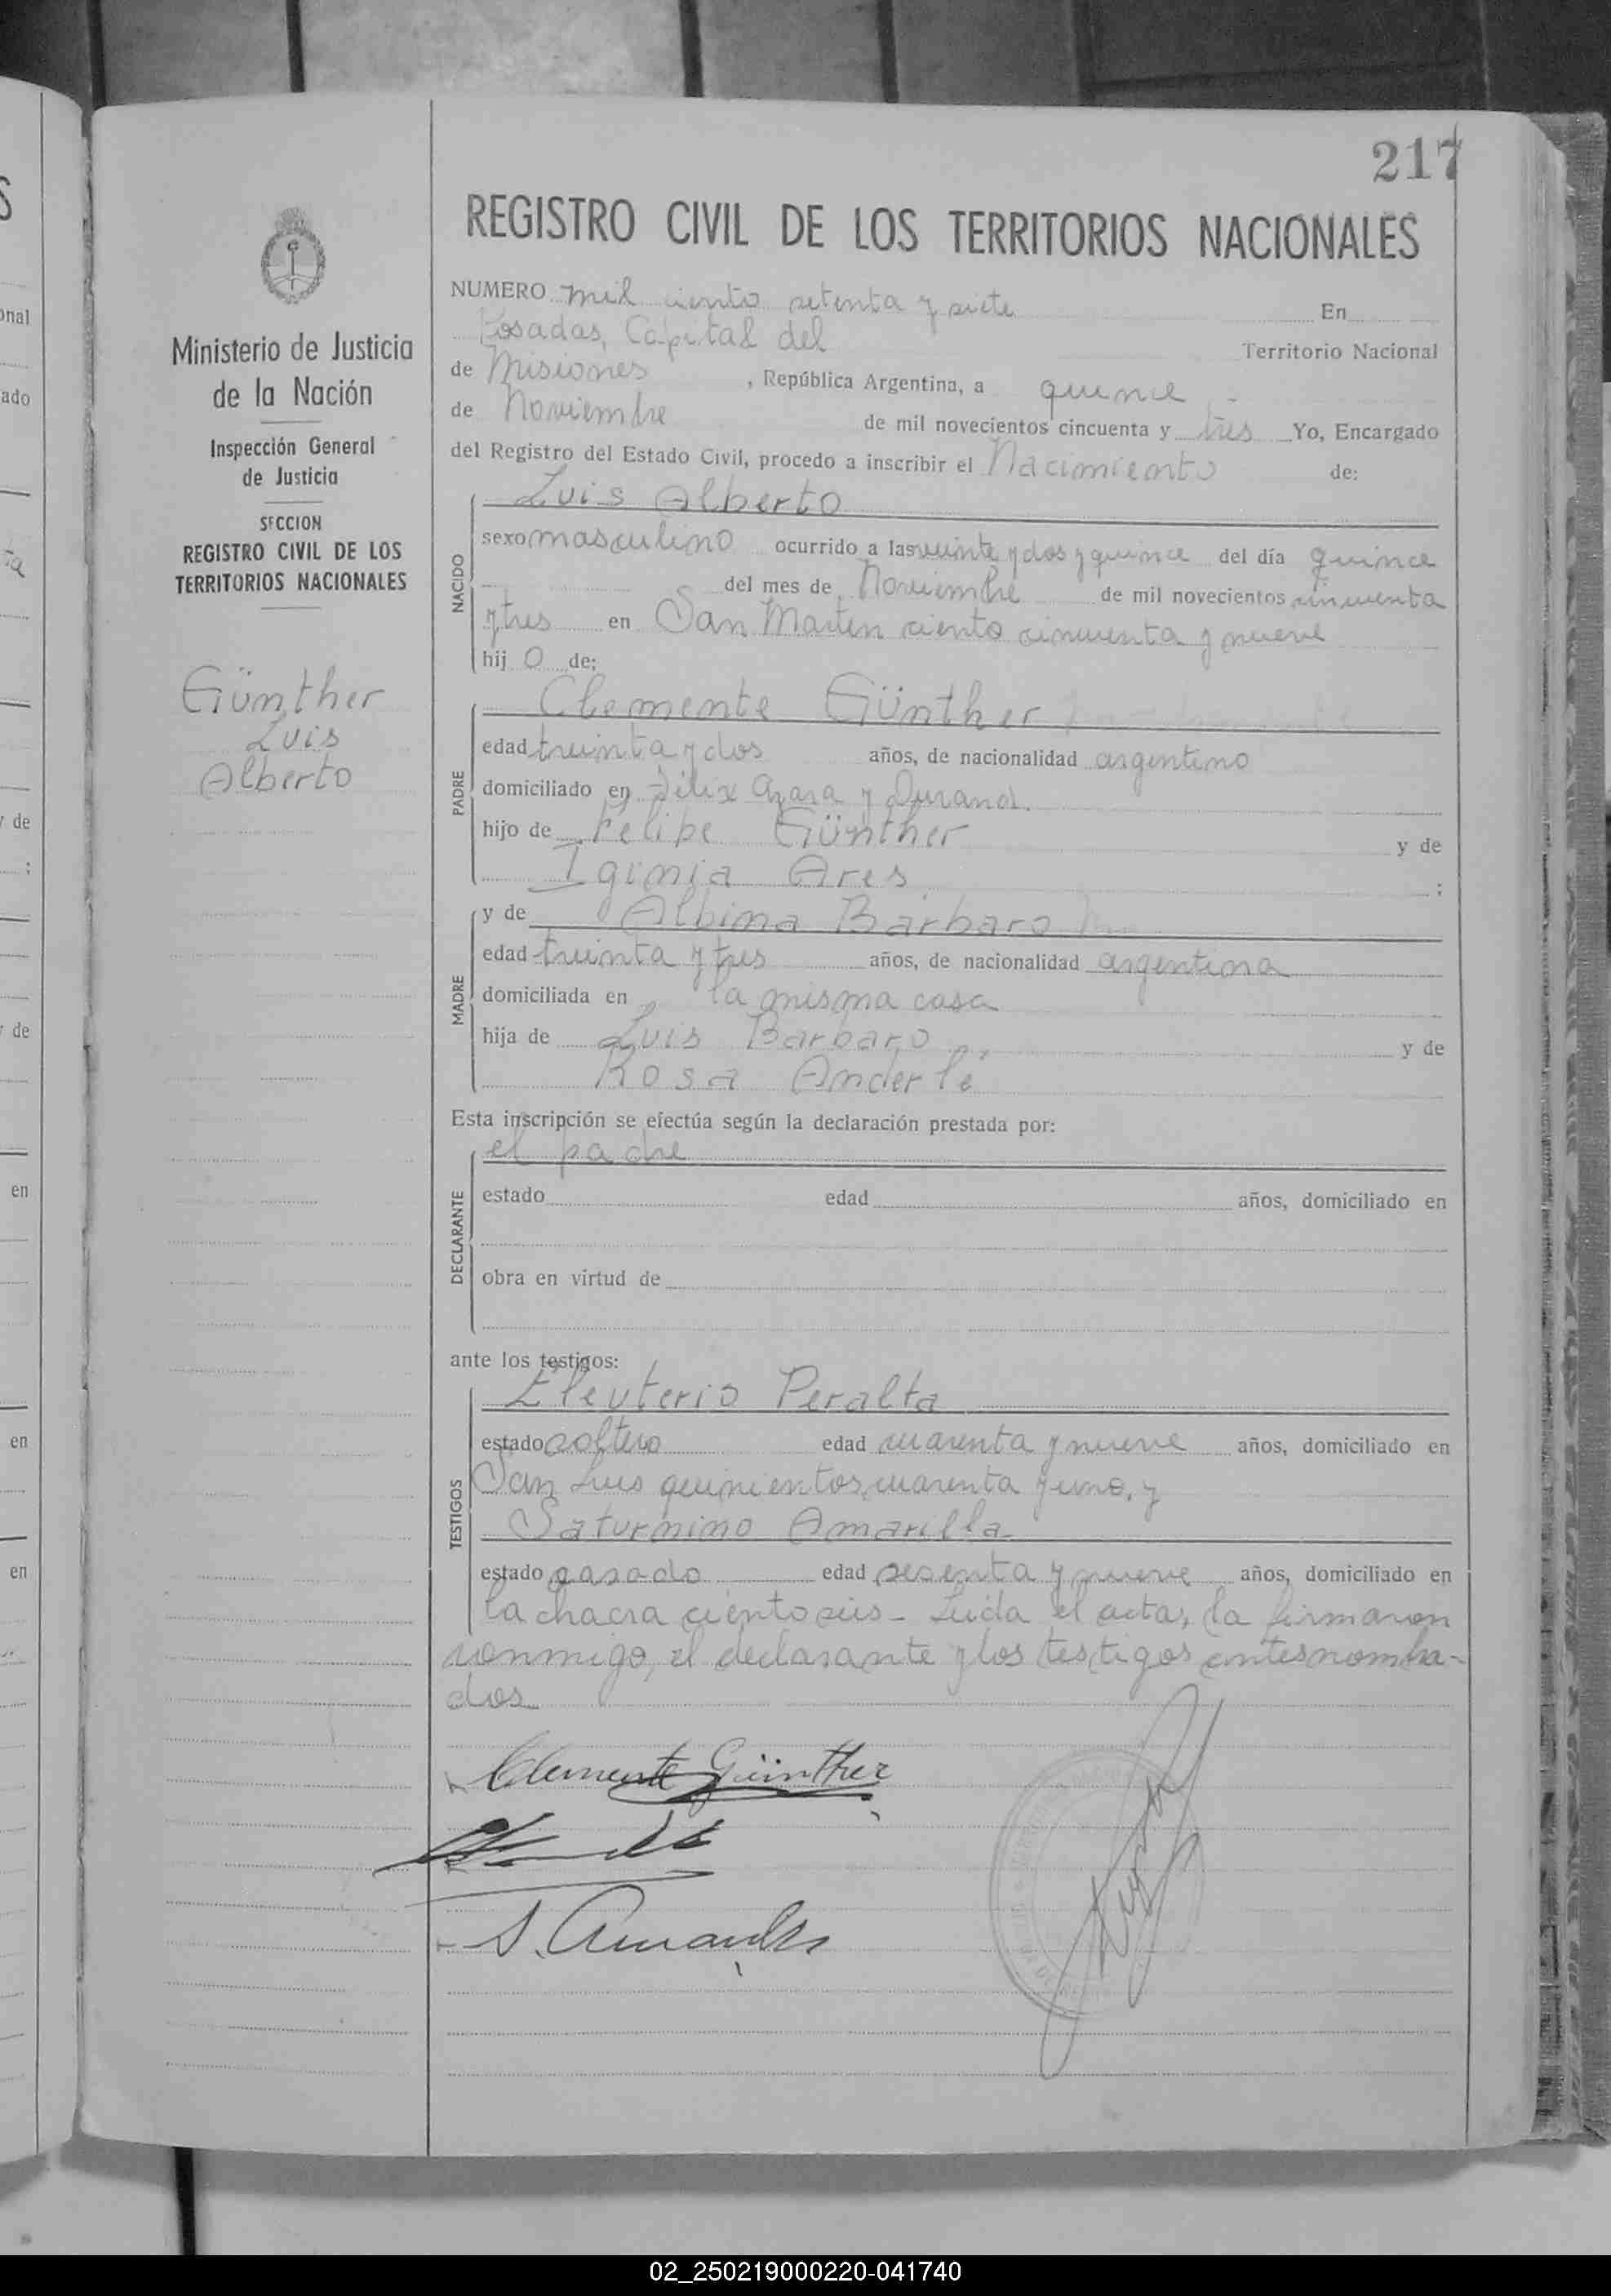 217
REGISTRO CIVIL DE LOS TERRITORIOS NACIONALES
Ministerio de Justicia
de la Nación
Inspección General
de Justicia
SECCION
REGISTRO CIVIL DE LOS
TERRITORIOS NACIONALES
Günther
Luis
Alberto
NUMERO mil ciento setenta y siete En
Posadas, Capital del Territorio Nacional
de Misiones, República Argentina, a quince
de Noviembre de mil novecientos cincuenta y tres Yo, Encargado
del Registro del Estado Civil, procedo a inscribir el Nacimiento de:
Luis Alberto
NACIDO
sexo masculino ocurrido a las veinte y dos y quince del día quince
del mes de Noviembre de mil novecientos cincuenta
y tres en San Martin ciento cincuenta y nueve
hij o de:
Clemente Günther
PADRE
edad treinta y dos años, de nacionalidad argentino
domiciliado en Félix Azara y Durand.
hijo de Felipe Günther y de
Iginia Ares ;
MADRE
y de Albina Bárbaro
edad treinta y tres años, de nacionalidad argentina
domiciliada en la misma casa
hija de Luis Bárbaro y de
Rosa Anderle
Esta inscripción se efectúa según la declaración prestada por:
el padre
DECLARANTE
estado edad años, domiciliado en
obra en virtud de
ante los testigos:
Eleuterio Peralta
TESTIGOS
estado soltero edad cuarenta y nueve años, domiciliado en
San Luis quinientos cuarenta y uno, y
Saturnino Amarilla
estado casado edad sesenta y nueve años, domiciliado en
la chacra ciento seis - Leida el acta, la firmaron
conmigo, el declarante y los testigos antes nombra-
dos
Clemente Günther
S. Amarilla
02_250219000220-041740